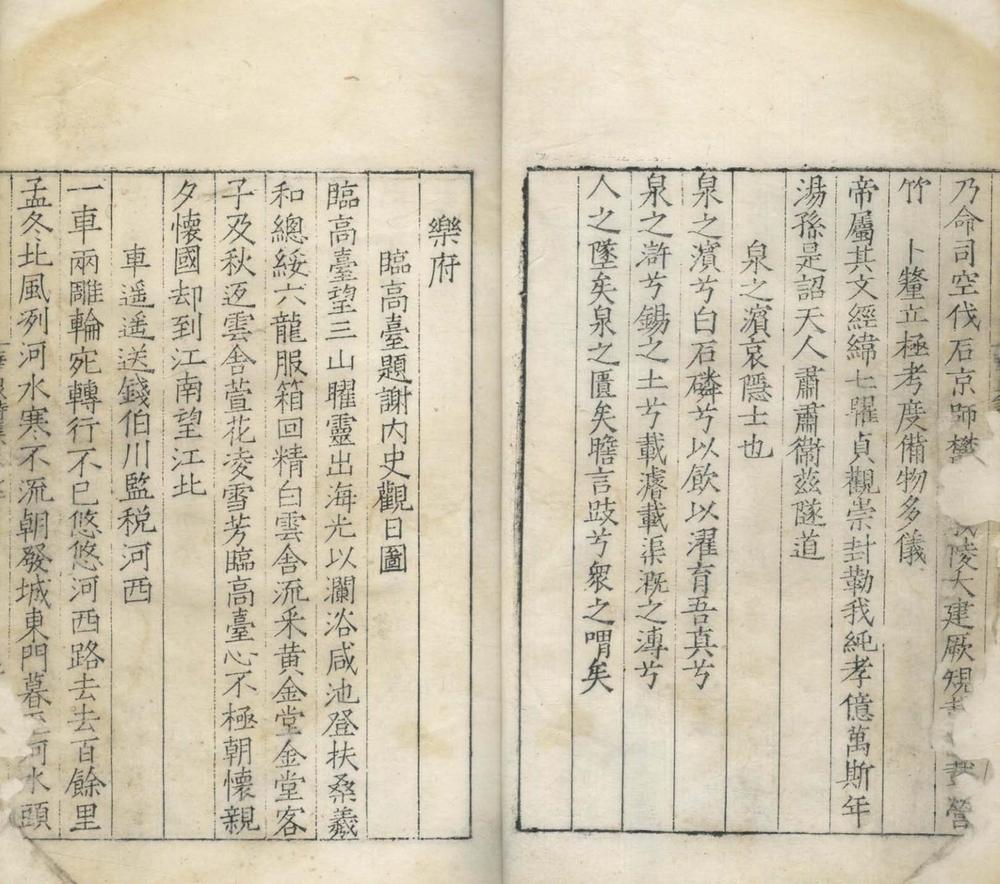 乃命司空伐石京師 陵大建厥規 營
竹 卜釐立極考度備物多儀
帝屬其文經緯七躍貞觀崇封勒我純孝億萬斯年
湯孫是詔天人肅肅衛茲隧道
泉之濱哀隱士也
泉之濱兮白石磷兮以飲以濯育吾真兮
泉之滸兮錫之土兮載濬載渠溉之溥兮
人之墜矣泉之匱矣瞻言跂兮衆之喟矣
樂府
臨高臺題謝內史觀日圖
臨高臺望三山曜靈出海光以瀾浴咸池登扶桑羲
和總綏六龍服箱回精白雲舍流采黄金堂金堂客
子及秋迓雲舍萱花凌雪芳臨高臺心不極朝懷親
夕懷國却到江南望江北
車遥遥送錢伯川監税河西
一車兩雕輪宛轉行不已悠悠河西路去去百餘里
孟冬北風冽河水寒不流朝發城東門暮 河水頭